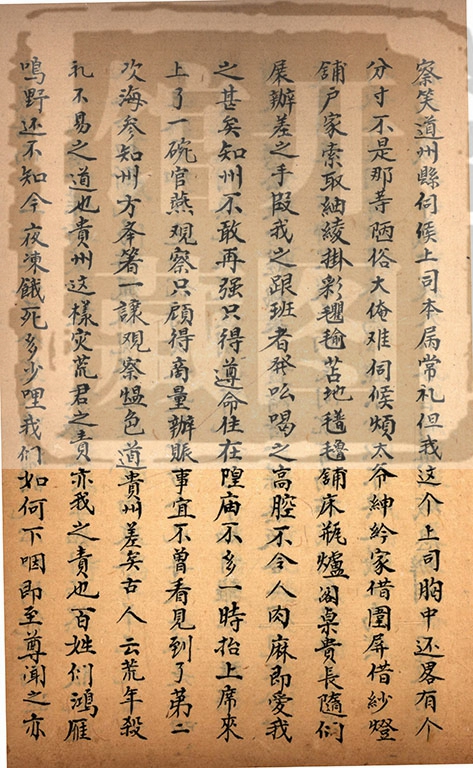 察笑道州縣伺候上司本属常礼但我这个上司胸中还畧有个
分寸不是那等陋俗大俺难伺候煩太爷紳衿家借圍屏借紗燈
舖户家索取紬綾掛彩氍毹苫地氆氇舖床瓶爐阁桌貴長隨们
展辦差之手段我之跟班者發吆喝之高腔不令人肉麻即愛我
之甚矣知州不敢再强只得遵命住在隍庙不多一時抬上席來
上了一碗官燕观察只顧得商量辦賑事宜不曾看見到了第二
次海参知州方举箸一讓观察愠色道貴州差矣古人云荒年殺
礼不易之道也貴州这樣灾荒君之責亦我之責也百姓们鴻雁
鳴野还不知今夜凍餓死多少哩我们如何下咽即至尊闻之亦
开图
馆藏